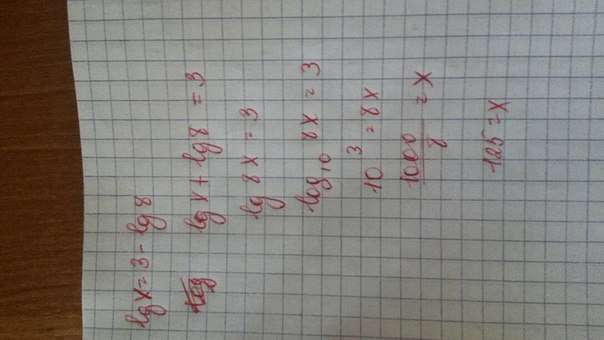 lg x = 3 - lg 8
lg x + lg 8 = 3
lg 8x = 3
log₁₀ 8x = 3
10³ = 8x
1000/8 = x
125 = x